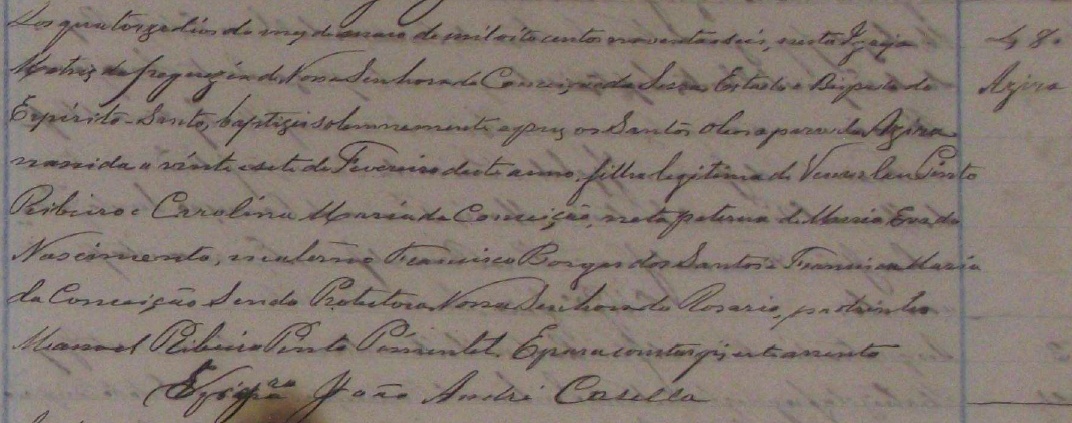 Aos quatorze dias do mez de março de mil oito centos noventa e seis, nesta Igreja
Matriz da freguezia de Nossa Senhora da Conceição da Serra, Estado e Bispado do
Espirito-Santo, baptizei solemnemente e puz os Santos Oleos a parvula Azira
nascida a vinte e sete de Fevereiro deste anno, filha legitima de Venceslau Pinto
Ribeiro e Carolina Maria da Conceição, neta paterna de Maria Eva do
Nascimento, materno Francisco Borges dos Santos e Francisca Maria
da Conceição Sendo Protectora Nossa Senhora do Rosario, padrinho
Manoel Ribeiro Pinto Pimentel. E para constar fiz este assento
João André Casella
48.
Azira